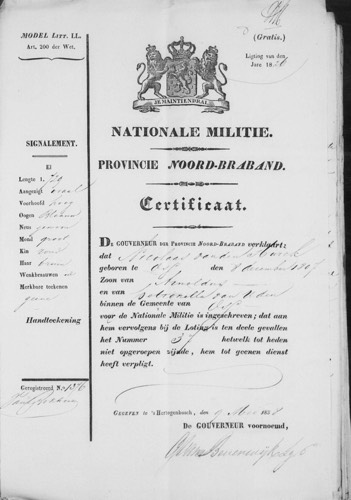 MODEL LITT. LL.
Art. 200 der Wet.
(Gratis.)
Ligting van den
Jare 18
JE MAINTIENDRAI
NATIONALE MILITIE.
PROVINCIE NOORD-BRABAND.
Certificaat.
SIGNALEMENT.
El
Lengte 1.
Aangezigt ovaal
Voorhoofd hoog
Oogen
Neus gewoon
Mond groot
Kin rond
Haar bruin
Wenkbraauwen id
Merkbare teekenen
geene
Handteekening
Geregistreerd No.
DE GOUVERNEUR DER PROVINCIE NOORD-BRABAND verklaart:
dat Nicolaas van den
geboren te den 8 December
Zoon van Arnoldus
en van Petronella van Uden
binnen de Gemeente van
voor de Nationale Militie is ingeschreven; dat aan
hem vervolgens bij de Loting is ten deele gevallen
het Nummer 37 hetwelk tot heden
niet opgeroepen zijnde, hem tot geenen dienst
heeft verpligt.
GEGEVEN te 's Hertogenbosch, den 9 Mei 18
DE GOUVERNEUR voornoemd,